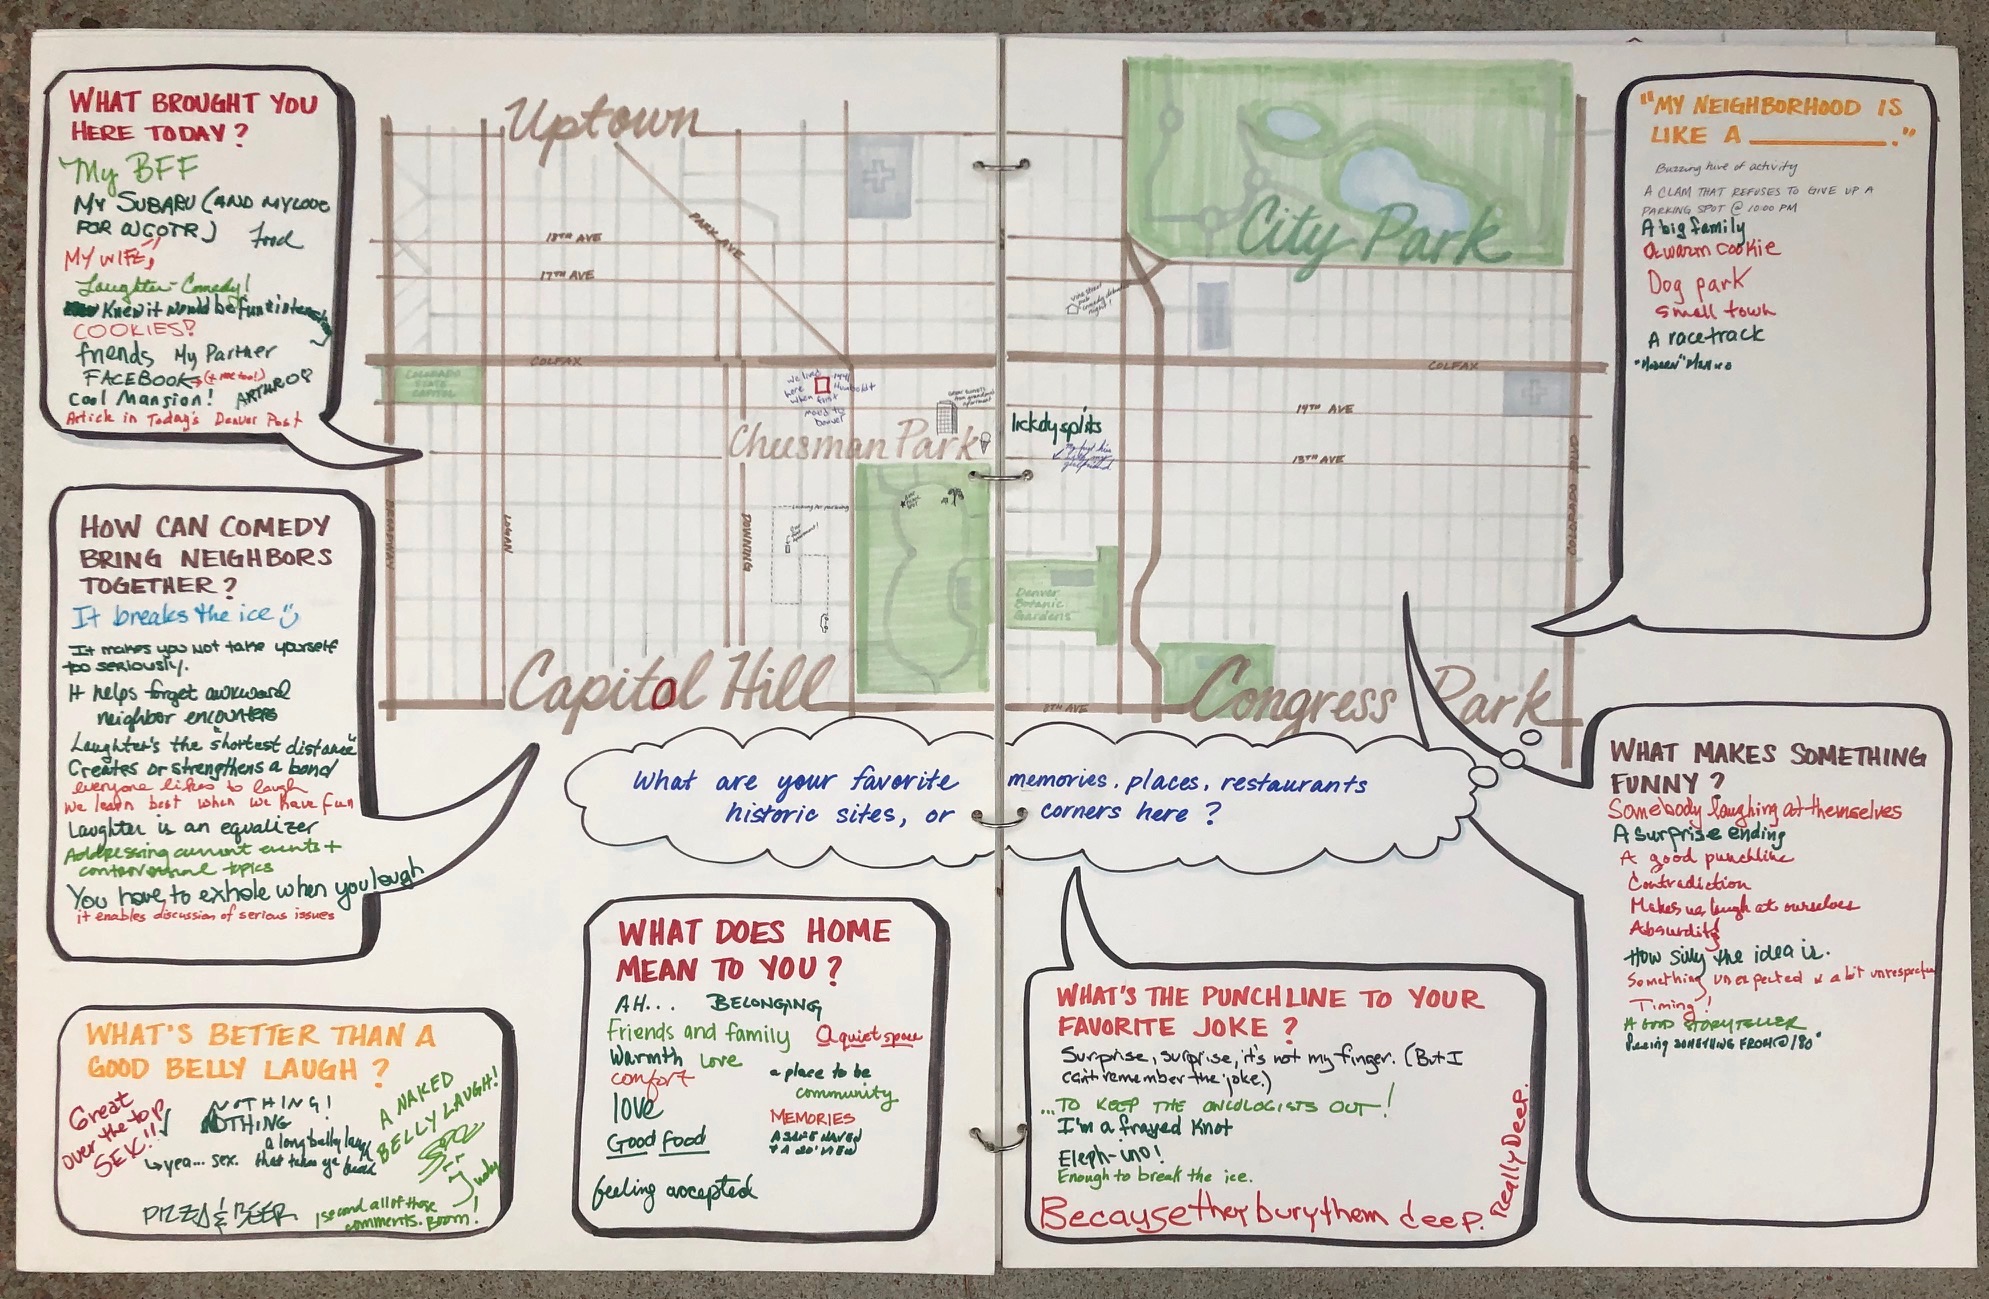 WHAT BROUGHT YOU
HERE TODAY?
My BFF
MY SUBARU (AND MY LOVE
FOR WGOTR)
Food
MY WIFE!
Laughter-Comedy!
Knew it would be fun & interesting
COOKIES?
friends My Partner
FACEBOOK (+ me too!)
ARTHRO?
Cool Mansion!
Article in Today's Denver Post
HOW CAN COMEDY
BRING NEIGHBORS
TOGETHER?
It breaks the ice
It makes you not take yourself
too seriously.
It helps forget awkward
neighbor encounters
Laughter's the "shortest distance"
Creates or strengthens a bond
everyone likes to laugh
We learn best when we have fun
Laughter is an equalizer
Addressing current events +
controversial topics
You have to exhale when you laugh
it enables discussion of serious issues
WHAT'S BETTER THAN A
GOOD BELLY LAUGH?
Great
over the top
SEX!!
NOTHING!
NOTHING
a long belly laugh
that takes ye
yea... sex.
A NAKED
BELLY LAUGH!
Judy
PIZZA & BEER
I second all of those
comments. BOOM!
Uptown
PARK AVE
18TH AVE
17TH AVE
COLFAX
COLORADO
STATE
CAPITOL
we lived
here
when first
moved to
Denver
1441
Humboldt
Chusman Park
BROADWAY
LOGAN
DOWNING
Capitol Hill
City Park
Vine Street
Pub
comedy
night!
COLFAX
lickdysplits
My first kiss
with my
girlfriend
14TH AVE
13TH AVE
COLORADO BLVD
Denver
Botanic
Gardens
8TH AVE
Congress Park
What are your favorite memories, places, restaurants
historic sites, or corners here?
WHAT DOES HOME
MEAN TO YOU?
AH... BELONGING
Friends and family
A quiet space
Warmth Love
comfort
a place to be
community
love
MEMORIES
Good food
A SAFE HAVEN
feeling accepted
WHAT'S THE PUNCHLINE TO YOUR
FAVORITE JOKE?
Surprise, surprise, it's not my finger. (But I
can't remember the joke.)
...TO KEEP THE ONCOLOGISTS OUT!
I'm a frayed knot
Eleph-ino!
Enough to break the ice.
Because they bury them deep.
Really Deep.
"MY NEIGHBORHOOD IS
LIKE A ________."
Buzzing hive of activity
A CLAM THAT REFUSES TO GIVE UP A
PARKING SPOT @ 10:00 PM
A big family
A warm cookie
Dog park
Small town
A racetrack
WHAT MAKES SOMETHING
FUNNY?
Somebody laughing at themselves
A surprise ending
A good punchline
Contradiction
Makes us laugh at ourselves
Absurdity
How silly the idea is.
Something unexpected & a bit unrespectful
Timing!
A GOOD STORYTELLER
Seeing SOMETHING FROM @ 180°